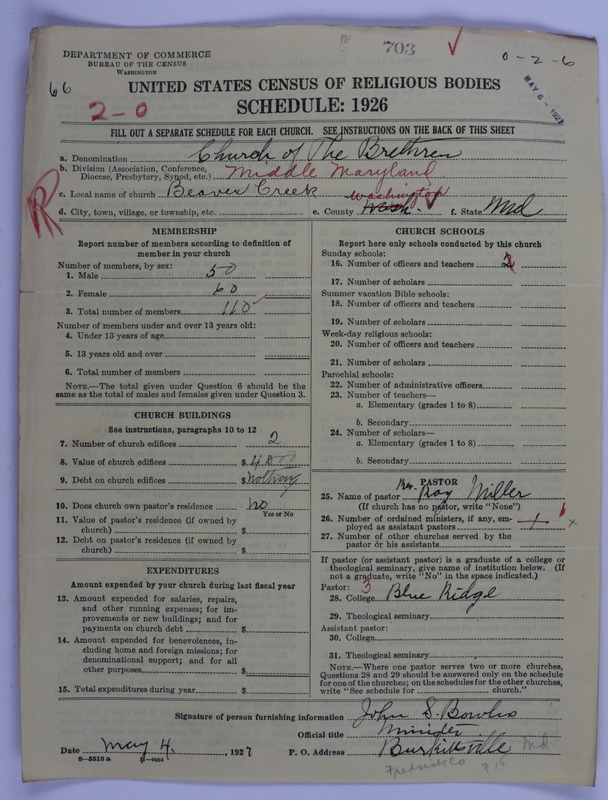 703
0-2-6
DEPARTMENT OF COMMERCE
BUREAU OF THE CENSUS
WASHINGTON
66
MAY 6 - 1927
UNITED STATES CENSUS OF RELIGIOUS BODIES
2-0
SCHEDULE: 1926
FILL OUT A SEPARATE SCHEDULE FOR EACH CHURCH. SEE INSTRUCTIONS ON THE BACK OF THIS SHEET
a. Denomination Church of The Brethren
b. Division (Association, Conference, Diocese, Presbytery, Synod, etc.) Middle Maryland
c. Local name of church Beaver Creek
d. City, town, village, or township, etc. e. County Wash. Washington f. State Md
R
MEMBERSHIP
Report number of members according to definition of member in your church
Number of members, by sex:
1. Male 50
2. Female 60
3. Total number of members 110
Number of members under and over 13 years old:
4. Under 13 years of age
5. 13 years old and over
6. Total number of members
NOTE.—The total given under Question 6 should be the same as the total of males and females given under Question 3.
CHURCH BUILDINGS
See instructions, paragraphs 10 to 12
7. Number of church edifices 2
8. Value of church edifices $ 4000
9. Debt on church edifices $ nothing
10. Does church own pastor's residence no
Yes or No
11. Value of pastor's residence (if owned by church) $
12. Debt on pastor's residence (if owned by church) $
EXPENDITURES
Amount expended by your church during last fiscal year
13. Amount expended for salaries, repairs, and other running expenses; for improvements or new buildings; and for payments on church debt $
14. Amount expended for benevolences, including home and foreign missions; for denominational support; and for all other purposes $
15. Total expenditures during year $
CHURCH SCHOOLS
Report here only schools conducted by this church
Sunday schools:
16. Number of officers and teachers 2
17. Number of scholars
Summer vacation Bible schools:
18. Number of officers and teachers
19. Number of scholars
Week-day religious schools:
20. Number of officers and teachers
21. Number of scholars
Parochial schools:
22. Number of administrative officers
23. Number of teachers—
a. Elementary (grades 1 to 8)
b. Secondary
24. Number of scholars—
a. Elementary (grades 1 to 8)
b. Secondary
PASTOR
25. Name of pastor Rev. Roy Miller
(If church has no pastor, write "None")
26. Number of ordained ministers, if any, employed as assistant pastors 1
27. Number of other churches served by the pastor or his assistants
If pastor (or assistant pastor) is a graduate of a college or theological seminary, give name of institution below. (If not a graduate, write "No" in the space indicated.)
Pastor: 3
28. College Blue Ridge
29. Theological seminary
Assistant pastor:
30. College
31. Theological seminary
NOTE.—Where one pastor serves two or more churches, Questions 28 and 29 should be answered only on the schedule for one of the churches; on the schedules for the other churches, write "See schedule for church."
Signature of person furnishing information John S. Bowlus
Official title Minister
Date May 4, 1927 P. O. Address Burkittsville Md
8-5518 a
Frederick Co